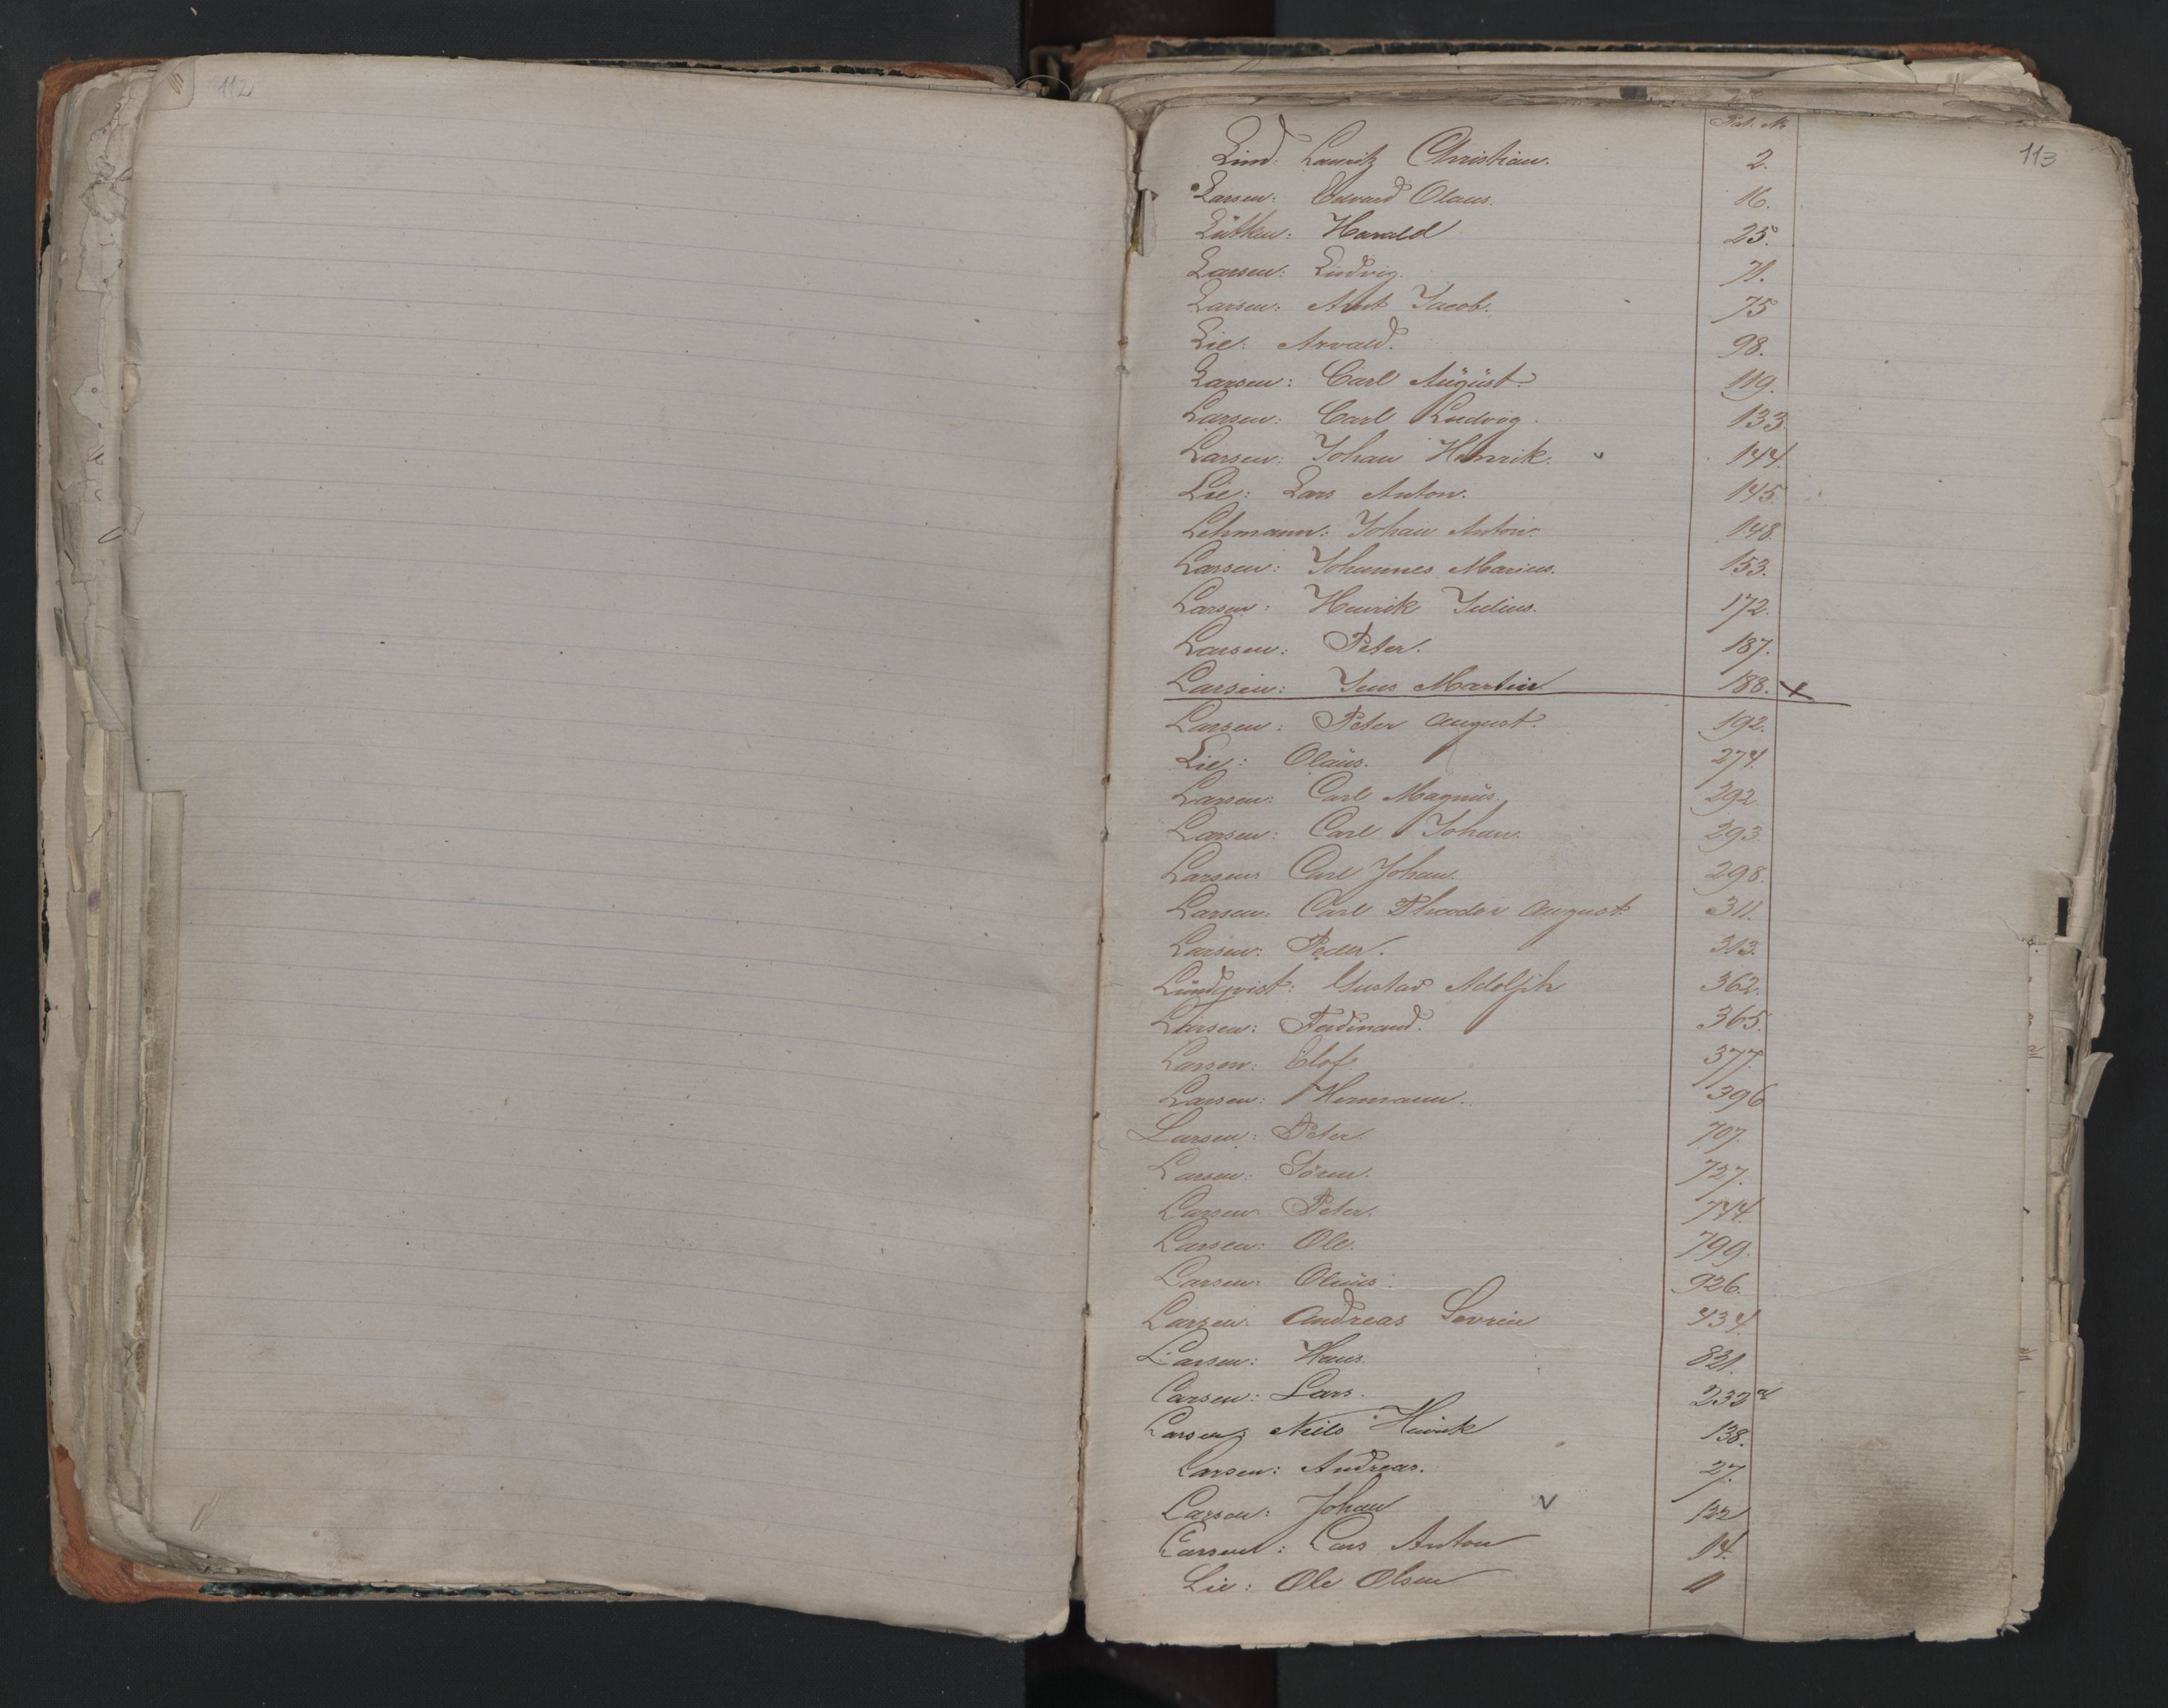 112
113
Pat. No
Lind: Lauritz Christian. 2.
Larsen: Edvard Olaus. 16.
Lütken: Harald 25.
Larsen: Ludvig. 71.
Larsen: Arnt Jacob. 75
Lie: Arvald. 98.
Larsen: Carl August. 119.
Larsen: Carl Ludvig. 133.
Larsen: Johan Henrik. v 144.
Lie: Lars Anton. 145.
Lehmann: Johan Anton. 148.
Larsen: Johannes Marius. 153.
Larsen: Henrik Julius. 172.
Larsen: Peter. 187.
Larsen: Jens Martin 188. x
Larsen: Peter August. 192.
Lie: Olaus. 274.
Larsen: Carl Magnus. 292.
Larsen: Carl Johan. 293.
Larsen: Carl Johan. 298.
Larsen: Carl Theodor August. 311.
Larsen: Peder. 313.
Lundqvist: Gustav Adolph 362.
Larsen: Ferdinand. 365.
Larsen: Elof. 377.
Larsen: Hermann. 396
Larsen: Peter. 707.
Larsen: Sören. 727.
Larsen: Peter. 744.
Larsen: Ole. 799.
Larsen: 926.
Larsen: Andreas Sevrin 434.
Larsen: Hans. 821.
Larsen: Lars. 233
Larsen: Nils Henrik 138.
Larsen: Andreas. 27.
Larsen: Johan v 122
Larsen: Lars Anton 14.
Lie: Ole Olsen 11